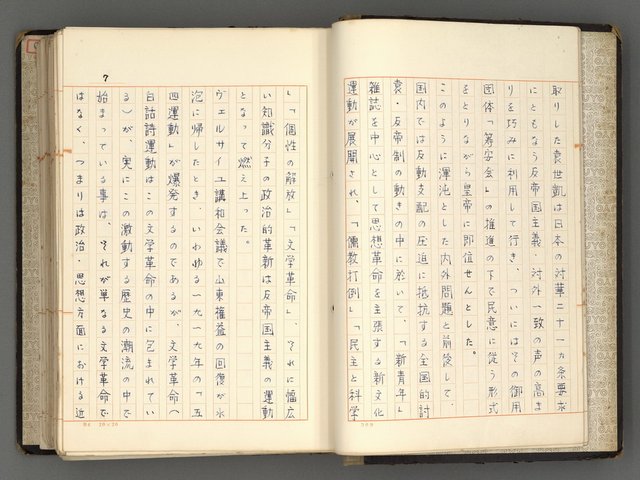 取りした袁世凱は日本の対華二十一カ条要求
にともなう反帝国主義・対外一致の声の高ま
りを巧みに利用して行き、ついにはその御用
団体「籌安会」の推進の下で民意に従う形式
をとりながら皇帝に即位せんとした。
このように渾沌とした内外問題と前後して、
国内では反動支配の圧迫に抵抗する全国的討
袁・反帝制の動きの中に於いて、「新青年」
雑誌を中心として思想革命を主張する新文化
運動が展開され、「儒教打倒」「民主と科学
」「個性の解放」「文学革命」、それに幅広
い知識分子の政治的革新は反帝国主義の運動
となって燃え上った。
ヴェルサイユ講和会議で山東権益の回復が水
泡に帰したとき、いわゆる一九一九年の「五
四運動」が爆発するのであるが、文学革命（
白話詩運動はこの文学革命の中に包まれてい
る）が、実にこの激動する歴史の潮流の中で
始まっている事は、それが単なる文学革命で
はなく、つまりは政治・思想方面における近
7
20×20